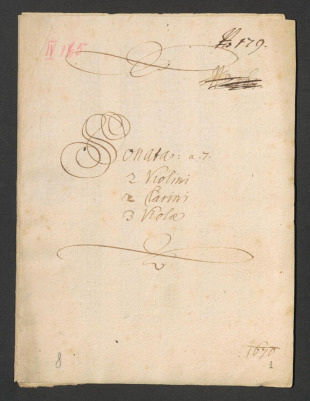 IV 185
No 179.
Sonata: a. 7.
2 Violini
2 Clarini
3 Violæ
1670
8
1